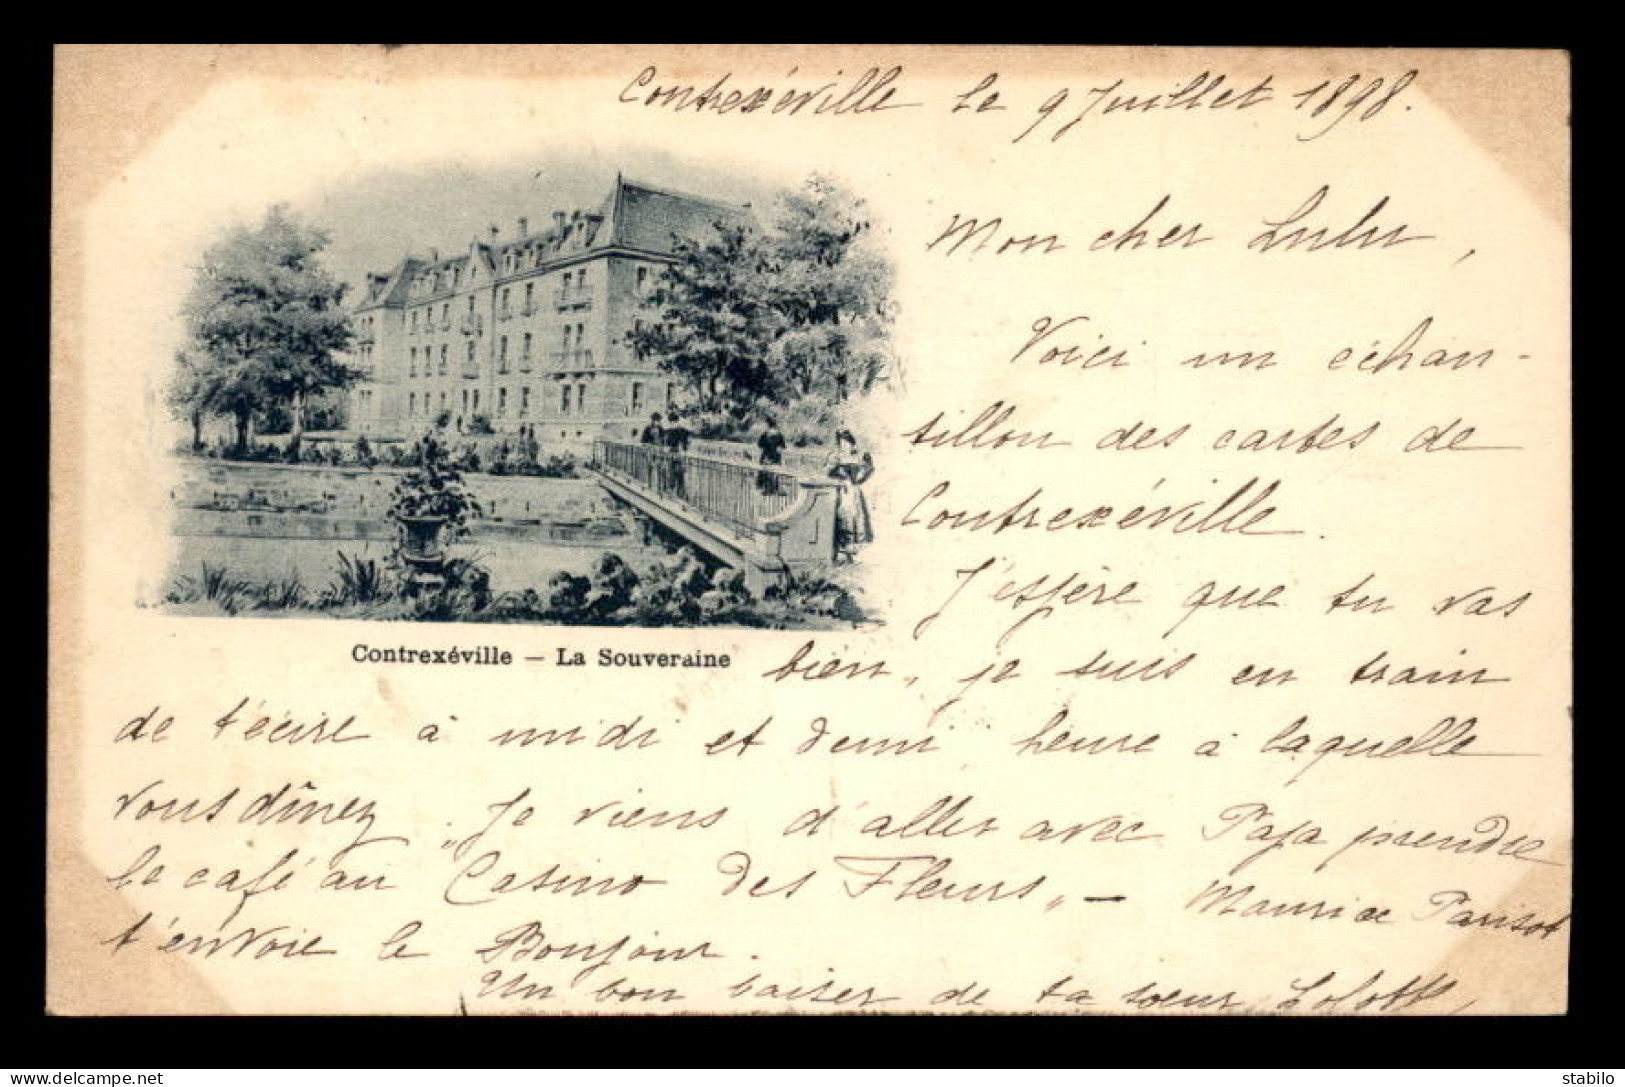 Contrexéville le 9 Juillet 1898.
Mon cher Lulu,
Voici un échan-
tillon des cartes de
Contrexéville.
J'espère que tu vas
Contrexéville — La Souveraine
bien, je suis en train
de t'écire à midi et demi heure à laquelle
vous dînez. "Je viens d'aller avec Papa prendre
le café au Casino des Fleurs" — Maurice Parisot
t'envoie le Bonjour.
Un bon baiser de ta sœur Lolotte,
delcampe.net
stabilo